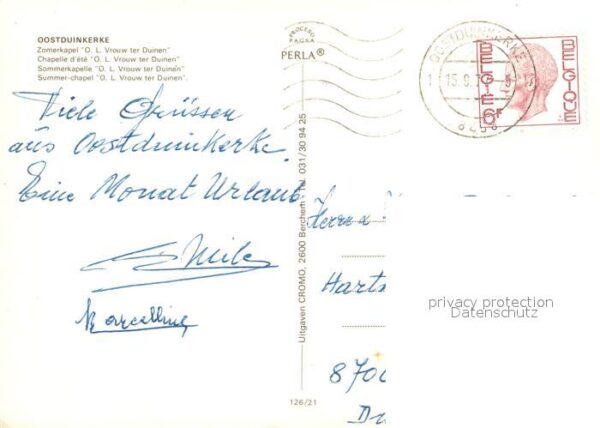 OOSTDUINKERKE
Zomerkapel "O. L. Vrouw ter Duinen"
Chapelle d'été "O. L. Vrouw ter Duinen"
Sommerkapelle "O. L. Vrouw ter Duinen"
Summer-chapel "O. L. Vrouw ter Duinen".
PROCEDO
PERLA®
OOSTDUINKERKE
BELGIE
BELGIQUE
6F
Viele Grüssen
aus Oostduinkerke.
Eine Monat Urlaub
Marcelline
Uitgaven CROMO, 2600 Berchem - Tel. 031/30 94 25
Herrn
Harts
870
126/21
privacy protection
Datenschutz